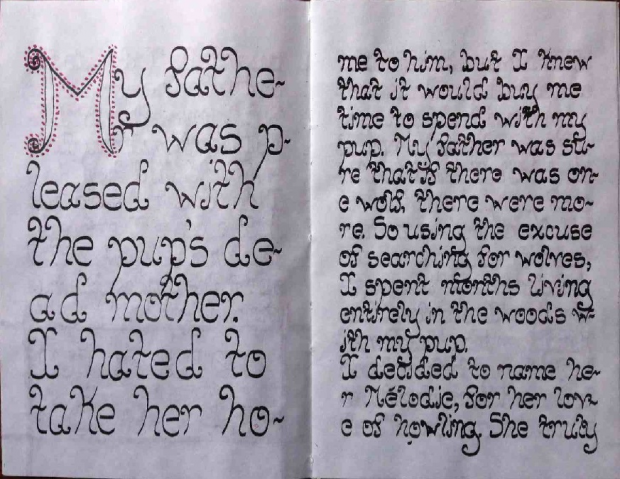 My fathe-
r was p-
leased with
the pup's de-
ad mother.
I hated to
take her ho-
me to him, but I knew
that it would buy me
time to spend with my
pup. My father was su-
re that if there was on-
e wolf, there were mo-
re. So using the excuse
of searching for wolves,
I spent months living
entirely in the woods w-
ith my pup.
I decided to name he-
r Mélodie, for her lov-
e of howling. She truly